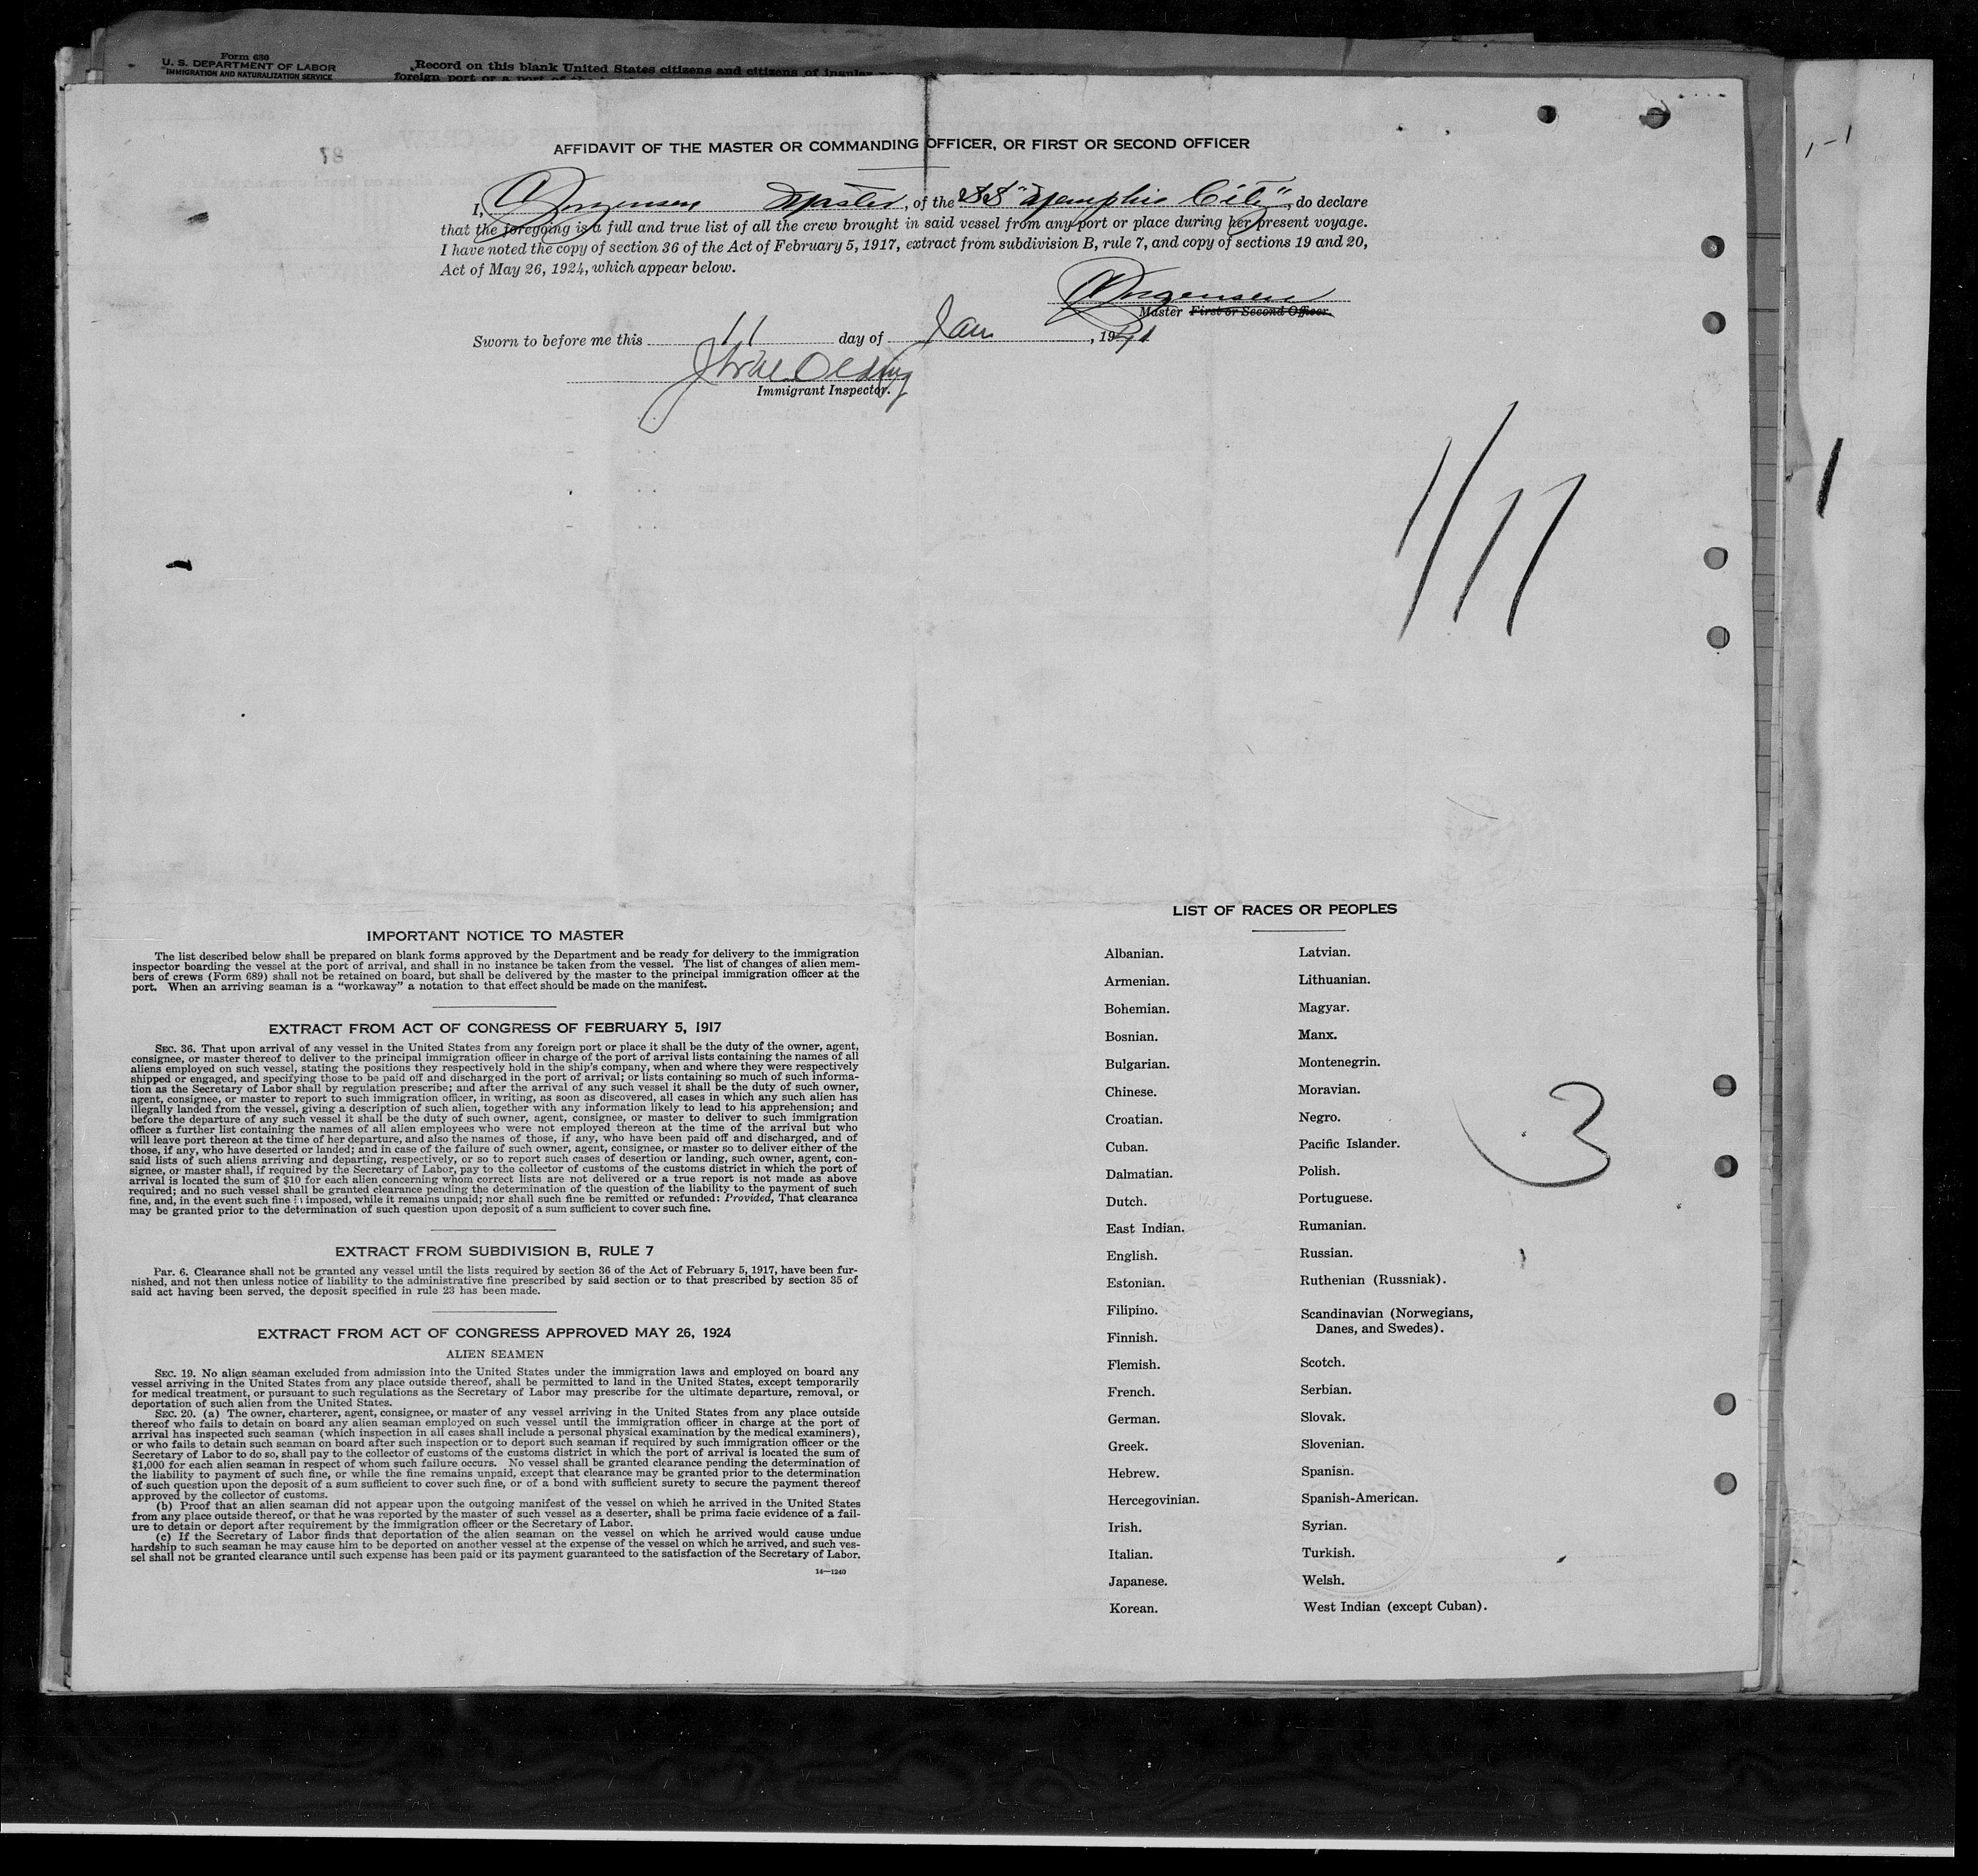 Form 680
U. S. DEPARTMENT OF LABOR
IMMIGRATION AND NATURALIZATION SERVICE
Record on this blank United States citizens and citizens of insular
foreign port or a port of
AFFIDAVIT OF THE MASTER OR COMMANDING OFFICER, OR FIRST OR SECOND OFFICER
I, Jorgensen Master, of the SS "Memphis City", do declare
that the foregoing is a full and true list of all the crew brought in said vessel from any port or place during her present voyage.
I have noted the copy of section 36 of the Act of February 5, 1917, extract from subdivision B, rule 7, and copy of sections 19 and 20,
Act of May 26, 1924, which appear below.
Jorgensen
Master First or Second Officer.
Sworn to before me this 11 day of Jan, 1941
Immigrant Inspector.
1/11
IMPORTANT NOTICE TO MASTER
The list described below shall be prepared on blank forms approved by the Department and be ready for delivery to the immigration
inspector boarding the vessel at the port of arrival, and shall in no instance be taken from the vessel. The list of changes of alien mem-
bers of crews (Form 689) shall not be retained on board, but shall be delivered by the master to the principal immigration officer at the
port. When an arriving seaman is a "workaway" a notation to that effect should be made on the manifest.
EXTRACT FROM ACT OF CONGRESS OF FEBRUARY 5, 1917
SEC. 36. That upon arrival of any vessel in the United States from any foreign port or place it shall be the duty of the owner, agent,
consignee, or master thereof to deliver to the principal immigration officer in charge of the port of arrival lists containing the names of all
aliens employed on such vessel, stating the positions they respectively hold in the ship's company, when and where they were respectively
shipped or engaged, and specifying those to be paid off and discharged in the port of arrival; or lists containing so much of such informa-
tion as the Secretary of Labor shall by regulation prescribe; and after the arrival of any such vessel it shall be the duty of such owner,
agent, consignee, or master to report to such immigration officer, in writing, as soon as discovered, all cases in which any such alien has
illegally landed from the vessel, giving a description of such alien, together with any information likely to lead to his apprehension; and
before the departure of any such vessel it shall be the duty of such owner, agent, consignee, or master to deliver to such immigration
officer a further list containing the names of all alien employees who were not employed thereon at the time of the arrival but who
will leave port thereon at the time of her departure, and also the names of those, if any, who have been paid off and discharged, and of
those, if any, who have deserted or landed; and in case of the failure of such owner, agent, consignee, or master so to deliver either of the
said lists of such aliens arriving and departing, respectively, or so to report such cases of desertion or landing, such owner, agent, con-
signee, or master shall, if required by the Secretary of Labor, pay to the collector of customs of the customs district in which the port of
arrival is located the sum of $10 for each alien concerning whom correct lists are not delivered or a true report is not made as above
required; and no such vessel shall be granted clearance pending the determination of the question of the liability to the payment of such
fine, and, in the event such fine is imposed, while it remains unpaid; nor shall such fine be remitted or refunded: Provided, That clearance
may be granted prior to the determination of such question upon deposit of a sum sufficient to cover such fine.
EXTRACT FROM SUBDIVISION B, RULE 7
Par. 6. Clearance shall not be granted any vessel until the lists required by section 36 of the Act of February 5, 1917, have been fur-
nished, and not then unless notice of liability to the administrative fine prescribed by said section or to that prescribed by section 35 of
said act having been served, the deposit specified in rule 23 has been made.
EXTRACT FROM ACT OF CONGRESS APPROVED MAY 26, 1924
ALIEN SEAMEN
SEC. 19. No alien seaman excluded from admission into the United States under the immigration laws and employed on board any
vessel arriving in the United States from any place outside thereof, shall be permitted to land in the United States, except temporarily
for medical treatment, or pursuant to such regulations as the Secretary of Labor may prescribe for the ultimate departure, removal, or
deportation of such alien from the United States.
SEC. 20. (a) The owner, charterer, agent, consignee, or master of any vessel arriving in the United States from any place outside
thereof who fails to detain on board any alien seaman employed on such vessel until the immigration officer in charge at the port of
arrival has inspected such seaman (which inspection in all cases shall include a personal physical examination by the medical examiners),
or who fails to detain such seaman on board after such inspection or to deport such seaman if required by such immigration officer or the
Secretary of Labor to do so, shall pay to the collector of customs of the customs district in which the port of arrival is located the sum of
$1,000 for each alien seaman in respect of whom such failure occurs. No vessel shall be granted clearance pending the determination of
the liability to payment of such fine, or while the fine remains unpaid, except that clearance may be granted prior to the determination
of such question upon the deposit of a sum sufficient to cover such fine, or of a bond with sufficient surety to secure the payment thereof
approved by the collector of customs.
(b) Proof that an alien seaman did not appear upon the outgoing manifest of the vessel on which he arrived in the United States
from any place outside thereof, or that he was reported by the master of such vessel as a deserter, shall be prima facie evidence of a fail-
ure to detain or deport after requirement by the immigration officer or the Secretary of Labor.
(c) If the Secretary of Labor finds that deportation of the alien seaman on the vessel on which he arrived would cause undue
hardship to such seaman he may cause him to be deported on another vessel at the expense of the vessel on which he arrived, and such ves-
sel shall not be granted clearance until such expense has been paid or its payment guaranteed to the satisfaction of the Secretary of Labor.
14—1240
LIST OF RACES OR PEOPLES
Albanian.
Armenian.
Bohemian.
Bosnian.
Bulgarian.
Chinese.
Croatian.
Cuban.
Dalmatian.
Dutch.
East Indian.
English.
Estonian.
Filipino.
Finnish.
Flemish.
French.
German.
Greek.
Hebrew.
Hercegovinian.
Irish.
Italian.
Japanese.
Korean.
Latvian.
Lithuanian.
Magyar.
Manx.
Montenegrin.
Moravian.
Negro.
Pacific Islander.
Polish.
Portuguese.
Rumanian.
Russian.
Ruthenian (Russniak).
Scandinavian (Norwegians,
Danes, and Swedes).
Scotch.
Serbian.
Slovak.
Slovenian.
Spanish.
Spanish-American.
Syrian.
Turkish.
Welsh.
West Indian (except Cuban).
3